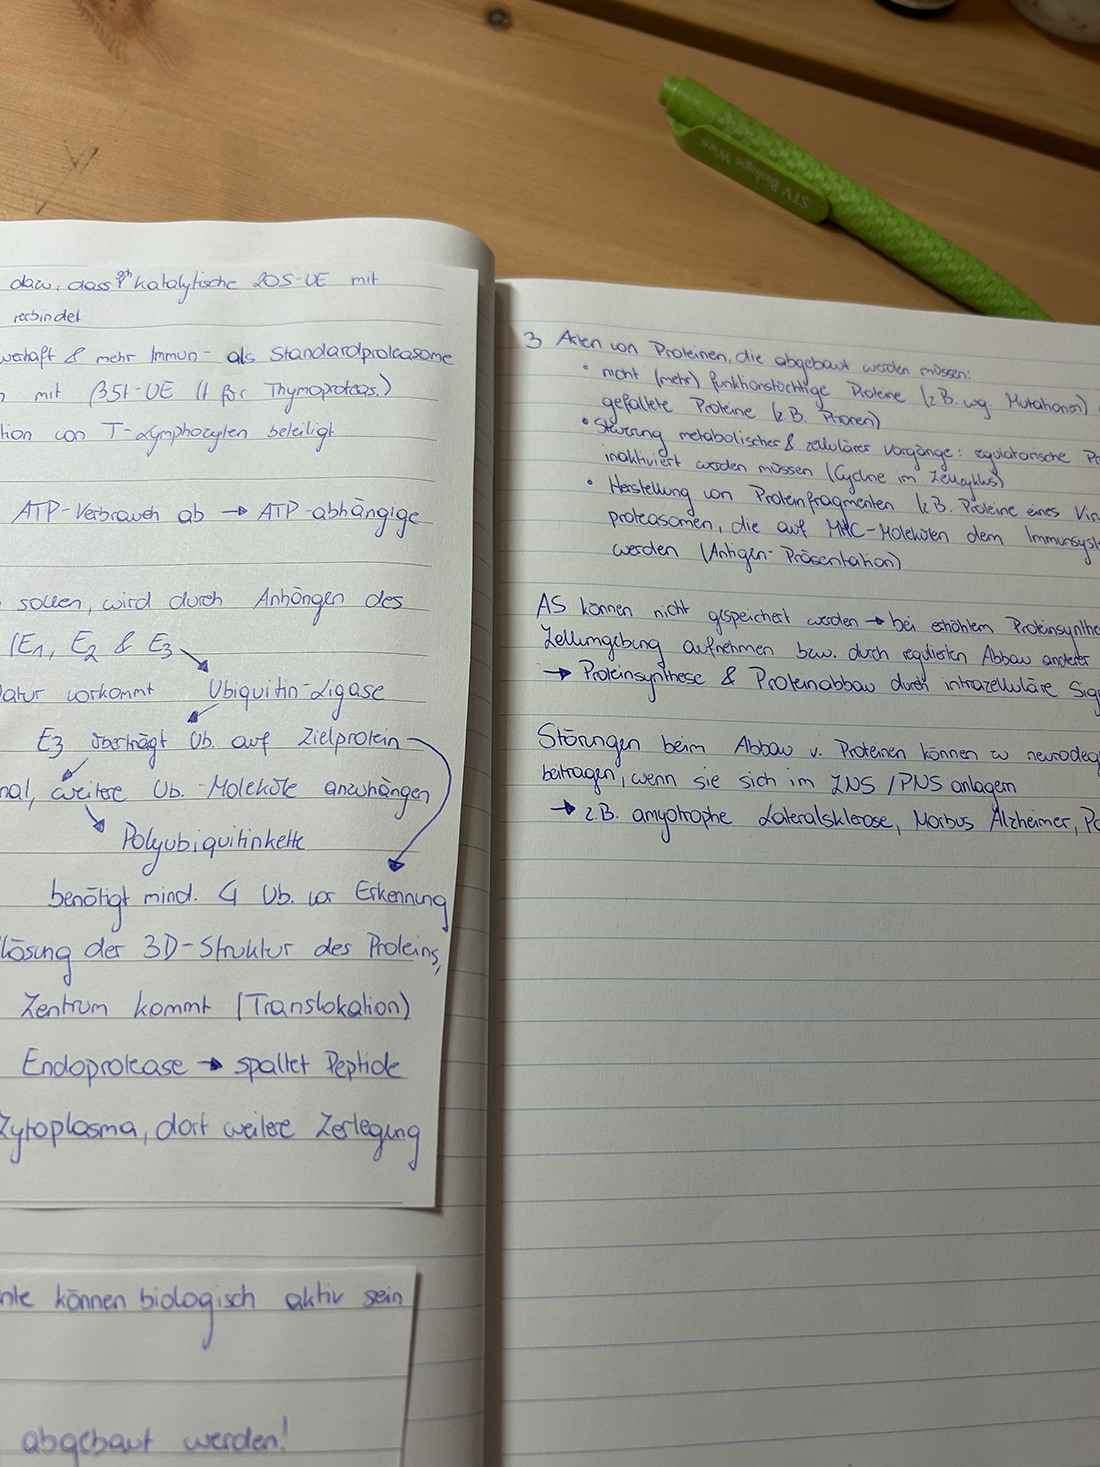 STV Biologie Wien
dazu, dass sich katalytische 20S-UE mit
verbindet
werhaft & mehr Immun- als Standardproteasome
mit β5t-UE (t für Thymoproteas.)
tion von T-Lymphozyten beteiligt
ATP-Verbrauch ab → ATP-abhängige
sollen, wird durch Anhängen des
(E1, E2 & E3
atur vorkommt Ubiquitin-Ligase
E3 überträgt Ub. auf Zielprotein
nal, weitere Ub.-Moleküle anzuhängen
Polyubiquitinkette
benötigt mind. 4 Ub. vor Erkennung
lösung der 3D-Struktur des Proteins,
Zentrum kommt (Translokation)
Endoprotease → spaltet Peptide
Zytoplasma, dort weitere Zerlegung
nte können biologisch aktiv sein
abgebaut werden!
3 Arten von Proteinen, die abgebaut werden müssen:
• nicht (mehr) funktionstüchtige Proteine (z.B. wg. Mutationen)
gefaltete Proteine (z.B. Prionen)
• Steuerung metabolischer & zellulärer Vorgänge: regulatorische Pr
inaktiviert werden müssen (Cycline im Zellzyklus)
• Herstellung von Proteinfragmenten (z.B. Proteine eines Vir
proteasomen, die auf MHC-Molekülen dem Immunsyst
werden (Antigen-Präsentation)
AS können nicht gespeichert werden → bei erhöhtem Proteinsynthe
Zellumgebung aufnehmen bzw. durch regulierten Abbau anderer
→ Proteinsynthese & Proteinabbau durch intrazelluläre Sig
Störungen beim Abbau v. Proteinen können zu neurodeg
beitragen, wenn sie sich im ZNS/PNS anlagern
→ z.B. amyotrophe Lateralsklerose, Morbus Alzheimer, Pa